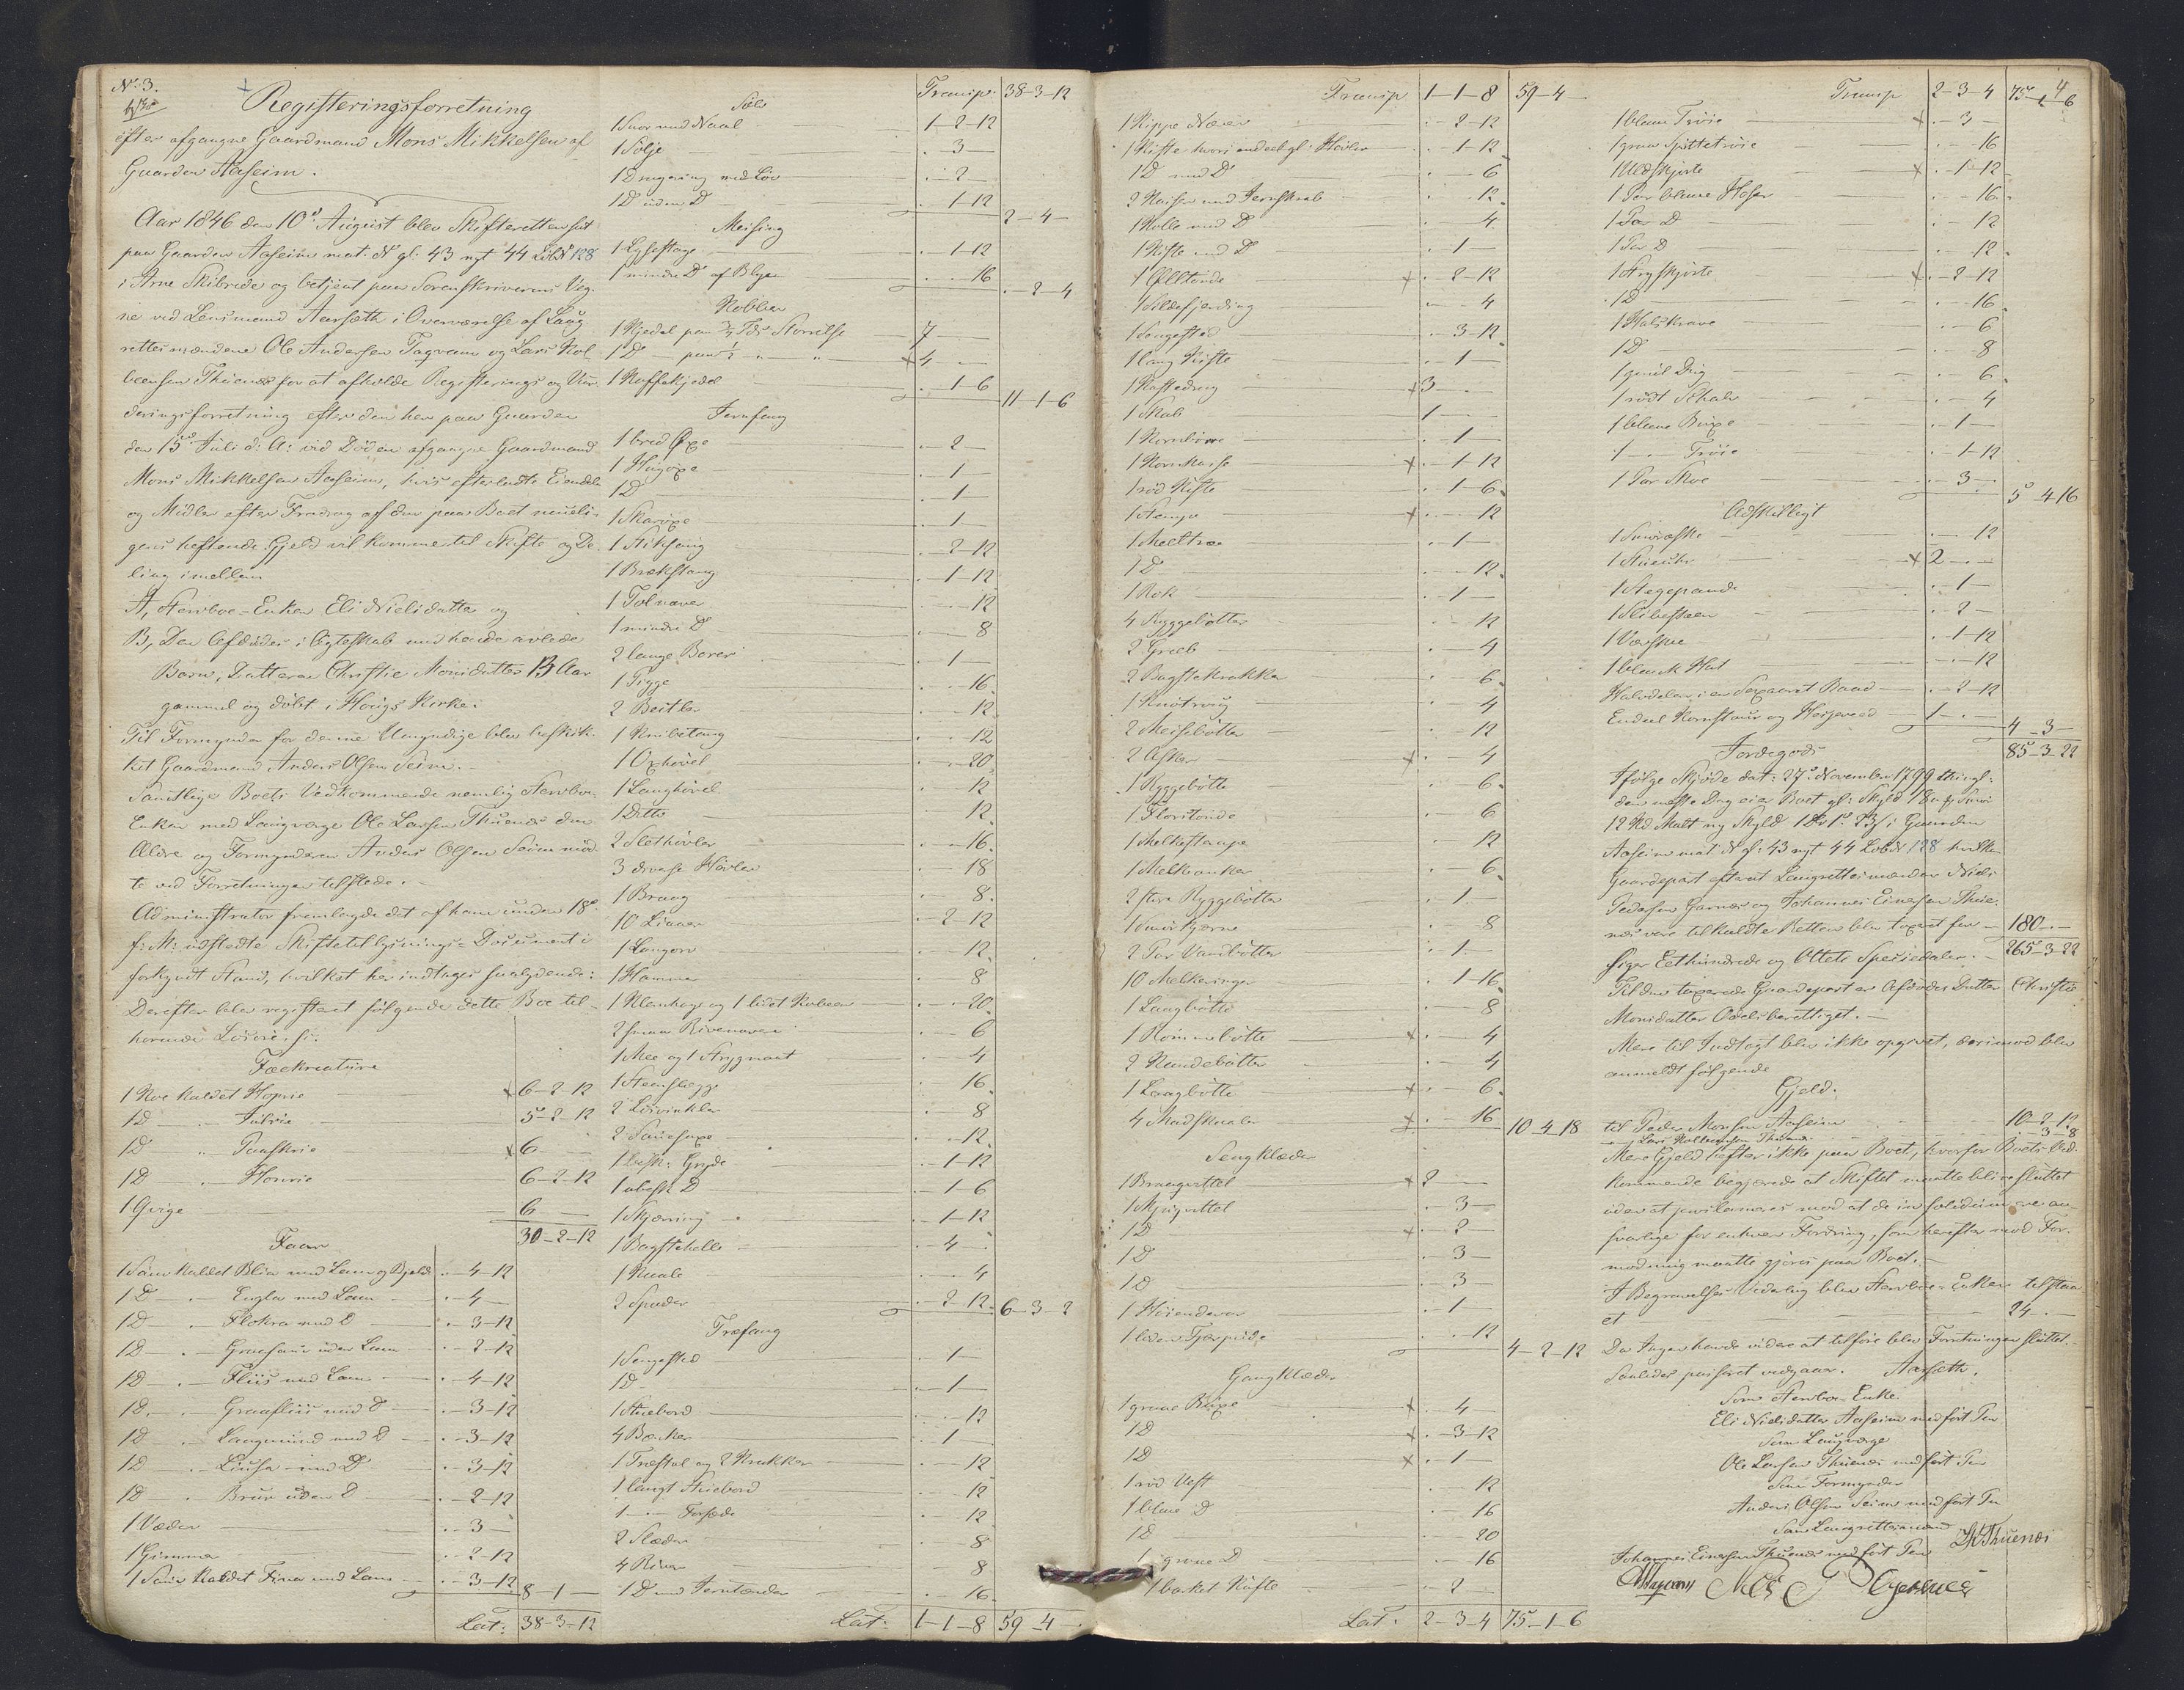 No 3.
Registeringsforretning
efter afgangne Gaardmand Mons Mikkelsen af
Gaarden Aaseim.
Aar 1846 den 10d August blev Skifteretten sat
paa Gaarden Aaseim mat. No gl. 43 nyt 44 Løb No 128
i Arne Skibrede og betjent paa Sorenskriverens Veg-
ne ved Lensmand Aarsæth i Overværelse af Laug-
rettesmændene Ole Andersen Tagvam og Lars Kol-
beensen Thuenæs for at afholde Registerings og Vur-
deringsforretning efter den her paa Gaarden
den 15d Juli d: A: ved Døden afgangne Gaardmand
Mons Mikkelsen Aaseim, hvis efterladte Eiendele
og Midler efter Fradrag af den paa Boet muuli-
gens heftende Gjeld vil komme til Skifte og De-
ling imellem
A, Sterboe-Enken Eli Nielsdatter og
B, Den Afdødes i Ægteskab med hende avlede
Barn, Datteren Christie Monsdatter 13 Aar
gammel og døbt i Hougs Kirke.
Til Formynder for denne Umyndige blev beskik-
ket Gaardmand Anders Olsen Seim.-
Samtlige Boets Vedkommende nemlig Sterboe-
Enken med Laugværge Ole Larsen Thuenæs den
Ældre og Formynderen Anders Olsen Seim mød-
te ved Forretningen tilstede.-
Administrator fremlagde det af ham under 18d
f: M: udstedte Skiftetillysnings-Document i
forkyndt Stand, hvilket her indtages saalydende:
Derefter blev registeret følgende dette Boe til-
hørende Løsøre, s:
Fækreature
1 Koe kaldet Hoprie x 6-2-12
1 Do - 5-2-12
1 Do - x 6
1 Do - 6-2-12
1 Qvige 6
30-2-12
Faar
1 Sau kaldet Blia med Lam og Bjelde .-4-12
1 Do - med Lam .-4-
1 Do - Flekra med Do .-3-12
1 Do - Graasau uden Lam .-2-12
1 Do - Fliis med Lam .-4-12
1 Do - Graafliis med Do .-3-12
1 Do - Langmind med Do .-3-12
1 Do - med Do .-3-12
1 Do - Brun uden Do .-2-12
1 Væder .-3-
1 Gimmer .-2-12
1 Sau kaldet Fina med Lam .-3-12 8-1-
Lat: 38-3-12
Transp: 38-3-12
Sølv
1 Snor med Naal 1-2-12
1 Sølje .-3-
1 Do ring med Løv .-2-
1 Do uden Do .-1-12
2-4-
Messing
1 Lysestage .-1-12
1 mindre Do af Blye .-.-16
.-2-4
Kobber
1 Kjedel paa 3/4 Tds Størrelse 7
1 Do - paa 1/2 - " x 4
1 Kaffekjedel .-1-6
11-1-6
Jernfang
1 bred Øxe .-2-
1 Hugøxe .-1-
1 Do .-1-
1 Skarøxe .-1-
1 Stiksaug .-2-12
1 Brækstang .-1-12
1 Tolnaver .-.-12
1 mindre Do .-.-8
2 lange Borer .-1-
1 Pigge .-.-16
2 Beitler .-.-12
1 Knibetang .-.-12
1 Oxhøvel .-.-20
1 Langhøvel .-.-12
1 Ditto .-.-12
2 Slethøvler .-.-16
3 diverse Høvler .-.-18
1 Braag .-.-8
10 Liaaer .-2-12
1 Langorv .-.-12
1 Hammer .-.-8
1 Kleinhage og 1 lidet Kobber .-.-20
2 smaa Rivenavere .-.-6
1 Mee og 1 Strygmaal .-.-4
1 Steenslegge .-.-16
2 .-.-8
2 Sauesaxe .-.-12
1 besk: Gryde .-1-12
1 ubesk Do .-1-6
1 Skjæring .-1-12
1 Bagstehelle .-4-
1 Knale .-.-4
2 Spader .-2-12 6-3-2
Træfang
1 Sengested .-1-
1 Do .-1-
1 Stuebord .-.-12
4 Bænker .-1-
1 Træstol og 2 Krakker .-.-12
1 langt Stuebord .-.-12
1 - Forsæde .-.-12
2 Slæder .-.-8
4 River .-.-8
1 Do med Jerntænder .-.-16
Lat: 1-1-8 59-4-
Transp 1-1-8 59-4-
1 Kippe Næver .-2-12
1 Kiste hvori endeel gl: Høvler .-1-12
1 Do med Do .-.-6
2 Kasser med Jernskrab .-.-12
1 Rolle med Do .-.-4
1 Kiste med Do .-1-
1 Ølltønde x .-2-12
1 Sildefjerding .-.-4
1 Sengested .-3-12
1 lang Kiste .-1-
1 x 3
1 Skab 1
1 Kornbøre .-1-
1 Kornkasse x .-1-12
1 rød Kiste .-1-6
1 Stampe x .-.-12
1 Meeltræe .-1-
1 Do .-.-12
1 Rok .-1-
4 Ryggebøtter .-.-12
2 Greeb .-.-4
2 Bagstekrakker .-.-6
1 Knøtroug .-.-4
2 Meisebøtter .-.-12
2 Asker x .-.-4
1 Ryggebøtte .-.-6
1 Floritønde .-.-6
1 Melkestampe .-.-12
1 Melkeanker .-.-6
2 store Ryggebøtter .-1.
1 Smørkjerne .-.-8
2 Par Vandbøtter .-1-
10 Melkeringer .-1-16
1 Laagbøtte .-.-8
1 Rømmebøtte x .-.-4
2 Rundebøtter .-.-4
1 Laagbøtte x .-.-6
4 Madskaaler x .-.-16 10-4-18
Sengklæder
1 Braagvittel x 2
1 Skjugvittel .-3-
1 Do x .-2-
1 Do .-3-
1 Do .-3-
1 Høiendevar .-1-
1 liden .-.-12
4-2-12
Gangklæder
1 graae Buxe x .-4-
1 Do x .-3-12
1 Do x .-1-
1 rød Vest .-.-12
1 blaae Do .-.-16
1 Do .-.-20
1 grøne Do .-.-16
1 barket Kufte .-2-
Lat: 2-3-4 75-1-6
4
Transp 2-3-4 75-1-6
1 blaae Trøie x .-3-
1 graae Spittetrøie .-.-16
1 Uldskjorte x .-1-12
1 Par blaae Hoser .-.-16
1 Par Do .-.-12
1 Par Do .-.-12
1 Strygskjorte x .-2-12
1 Do .-.-16
1 Halskrave .-.-6
1 Do .-.-8
1 guul Dug .-.-6
1 rødt Schale .-.-4
1 blaae Buxe .-1-
1 - Trøie .-1-12
1 Par Skoe .-3-
5-4-16
Adskilligt
1 Smøræske .-.-12
1 Stueuhr x 2
1 Stegepande .-1-
1 Slibesteen .-2-
1 Væsske .-1-12
1 blank Hat .-.-12
Halvdelen i en Sexaaret Baad .-2-12
Endeel Kornstaur og Hesjeveed 1
4-3-
85-3-22
Jordegods
Ifølge Skjøde dat: 27d November 1799 thingl:
den næste Dag eier Boet gl: Skyld 18 Smør
12 Kd Malt ny Skyld 1 Dr 1 2 i Gaarden
Aaseim mat: No gl. 43 nyt 44 Løb No 128 hvilken
Gaardepart efterat Laugrettesmændene Niels
Pedersen Garnæs og Johannes Einersen Thue-
næs vare tilkaldte Retten blev taxeret for 180
siger Eet hundrede og Ottete Speciedaler.- 265-3-22
Til den taxerede Gaardepart er Afdødes Datter Christie
Monsdatter Odelsberettiget.-
Mere til Indtægt blev ikke opgivet, derimod blev
anmeldt følgende
Gjeld:
til Peder Monsen Aaseim 10-2-12
- Lars Kolbeensen Thuenæs .-3-8
Mere Gjeld hefter ikke paa Boet, hvorfor Boets Ved-
kommende begjærede at Skiftet maatte blive sluttet
uden at proclameres mod at de in solidum ere an-
svarlige for enhver Fordring, som herefter med For-
modning maatte gjøres paa Boet.-
I Begravelses Vederlag blev Sterboe-Enken tilstaa-
et 24
Da Ingen havde videre at tilføre blev Forretningen sluttet.
Saaledes passeret vedgaaes. Aarsæth.
Som Sterboe-Enke
Eli Nielsdatter Aaseim med ført Pen
Som Laugværge
Ole Larsen Thuenæs med ført Pen
Som Formynder
Anders Olsen Seim med ført Pen
Som Laugrettesmænd
Johannes Einersen Thuenæs med ført Pen L K Thuenæs